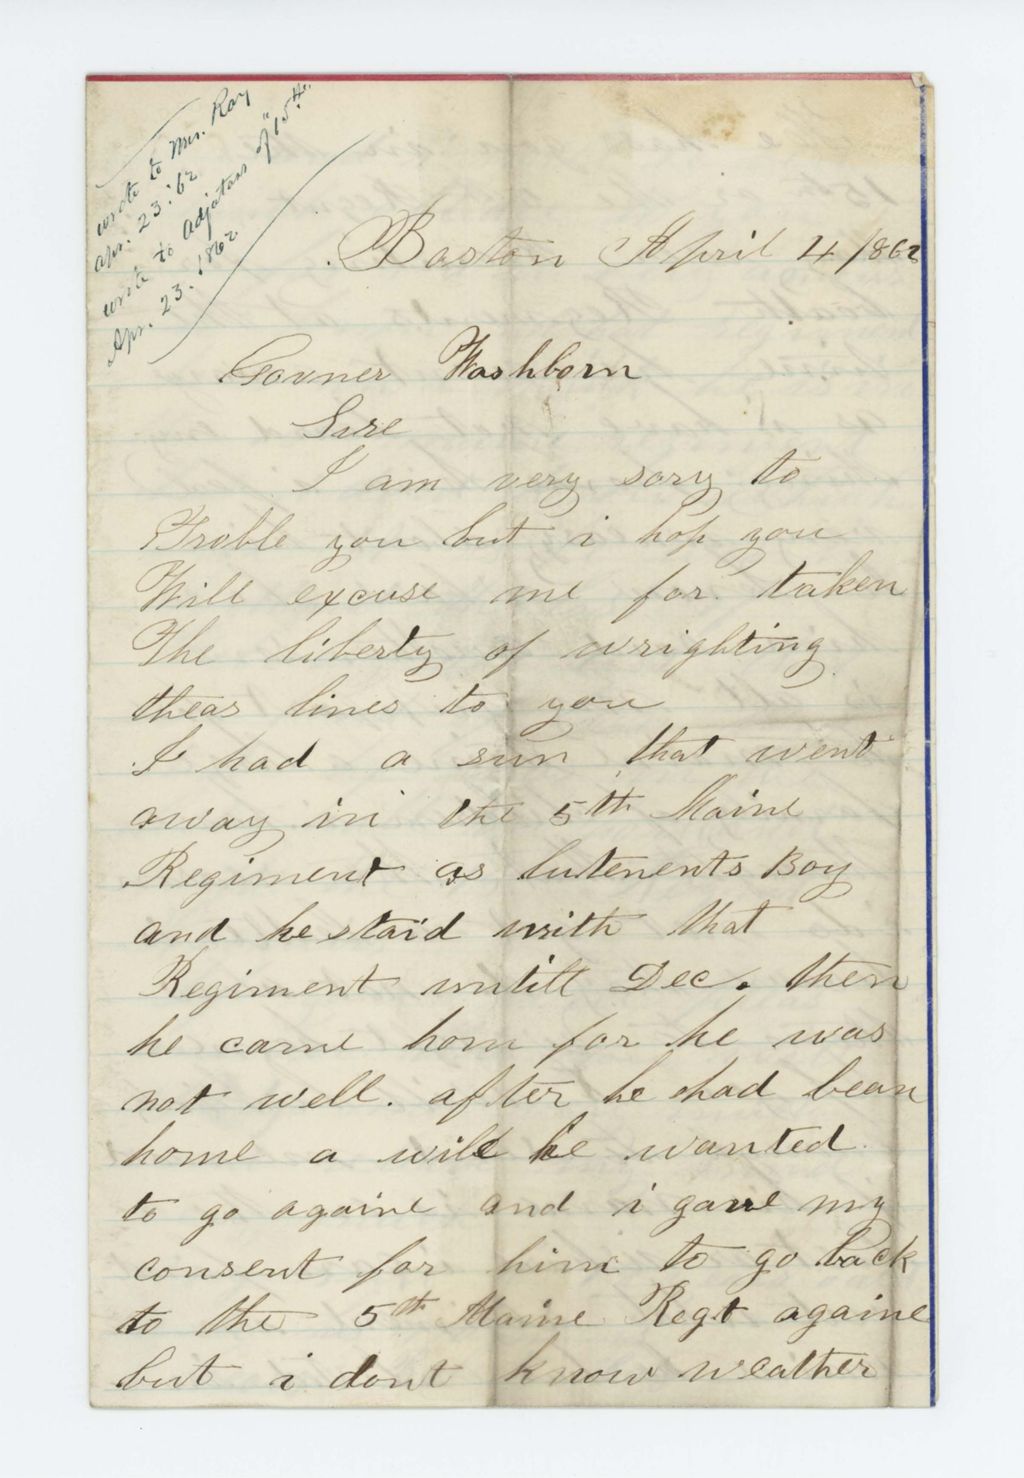 wrote to Mrs. Ray
apr. 23. '62
wrote to Adjutant of "15th"
Apr. 23. 1862
Boston April 4 1862
Govner Washborn
Sire
I am very sory to
Troble you but i hop you
Will excuse me for taken
The liberty of wrighting
theas lines to you
I had a sun that went
away in the 5th Maine
Regiment as lutenents Boy
and he staid with that
Regiment untill Dec. then
he came hom for he was
not well. after he had bean
home a will he wanted
to go againe and i gave my
consent for him to go back
to the 5th Maine Regt againe
but i dont know weather